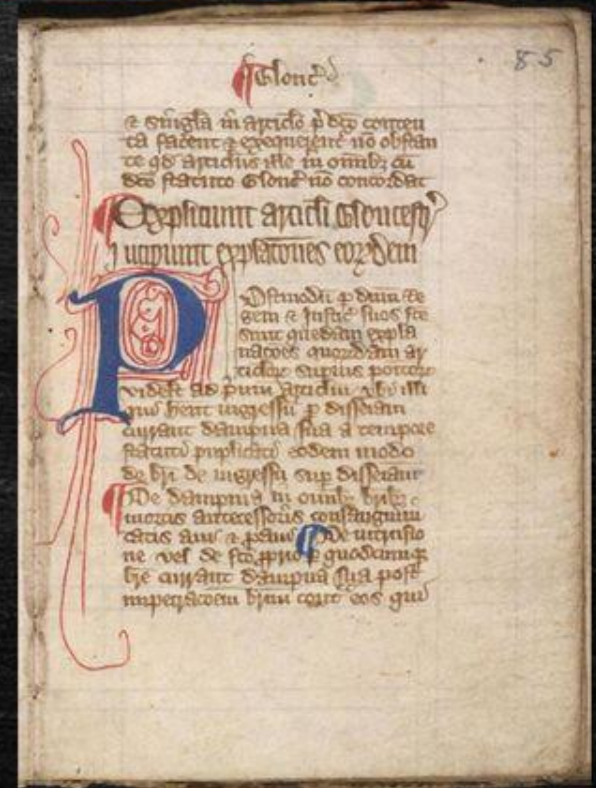 85
Glouc̄
& singĺa in articĺo p̄dc̄o conten
ta facent & exequent̄ nō obstan
te qd̄ articĺus ille in om̄ib; cū
dc̄o statuto Glouc̄ nō concordat
Expliciunt articĺi Gloucestr̄
Incipiunt explac̄ones eorūdem
Postmodū p̄ dn̄um Re
gem & Justic̄ suos fc̄e
sunt quedam expla
nac̄oes quorūdam ar
ticĺor̄ supius poitor̄
videĺt ad p̄mum articĺm ubi
hent̄ ingressū p̄ disseiam
currant dampna sua a tempore
statuti puplicati eodem modo
de br̄i de ingressu sup̄ disseiam
De dampnis in om̄ib; br̄ib;
mortis antecessoris consanguini
tatis aui & p̄aui De intrusio
ne vel de fc̄o p̄prio p̄ quodcumq;
br̄e currant dampna sua post
impetrac̄oem br̄ium cont̄ eos qui